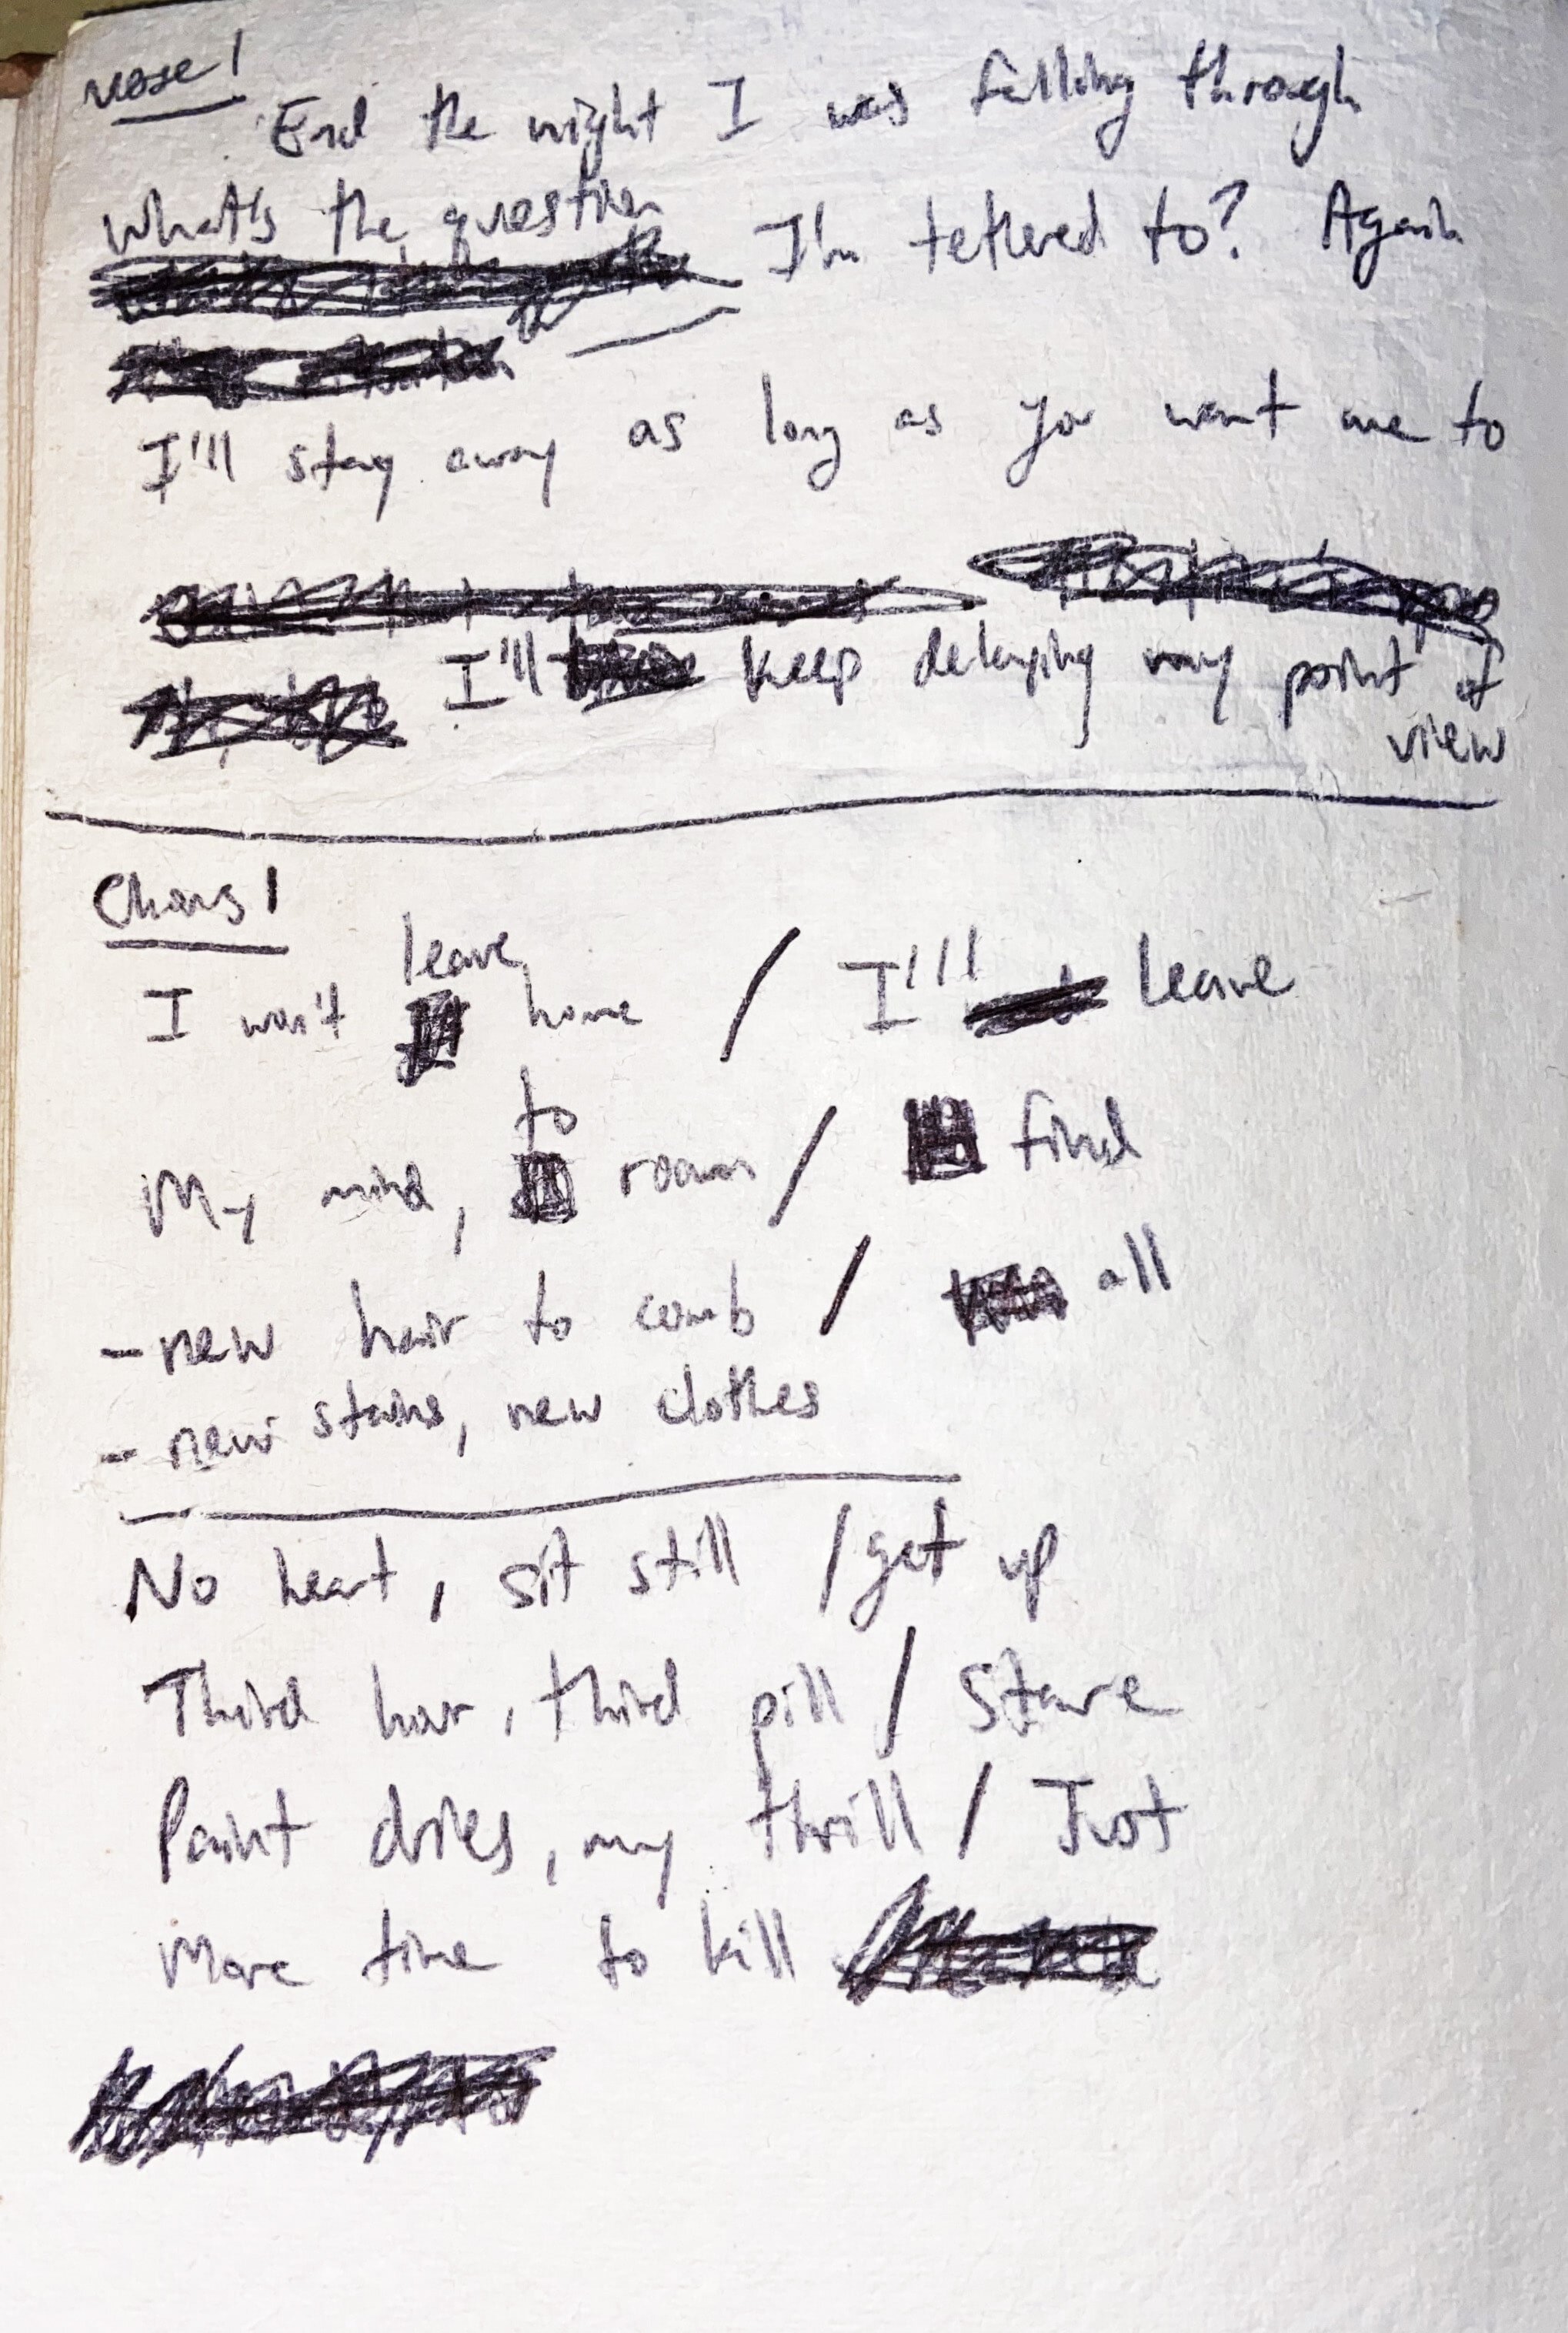 verse 1
End the night I was falling through
What's the question I'm tethered to? Again
I'll stay away as long as you want me to
I'll keep delaying my point of
view
Chorus 1
I won't leave home / I'll leave
My mind, to roam / find
- new hair to comb / all
- new stains, new clothes
No heart, sit still / get up
Third hour, third pill / Stare
Paint dries, my thrill / Just
More time to kill